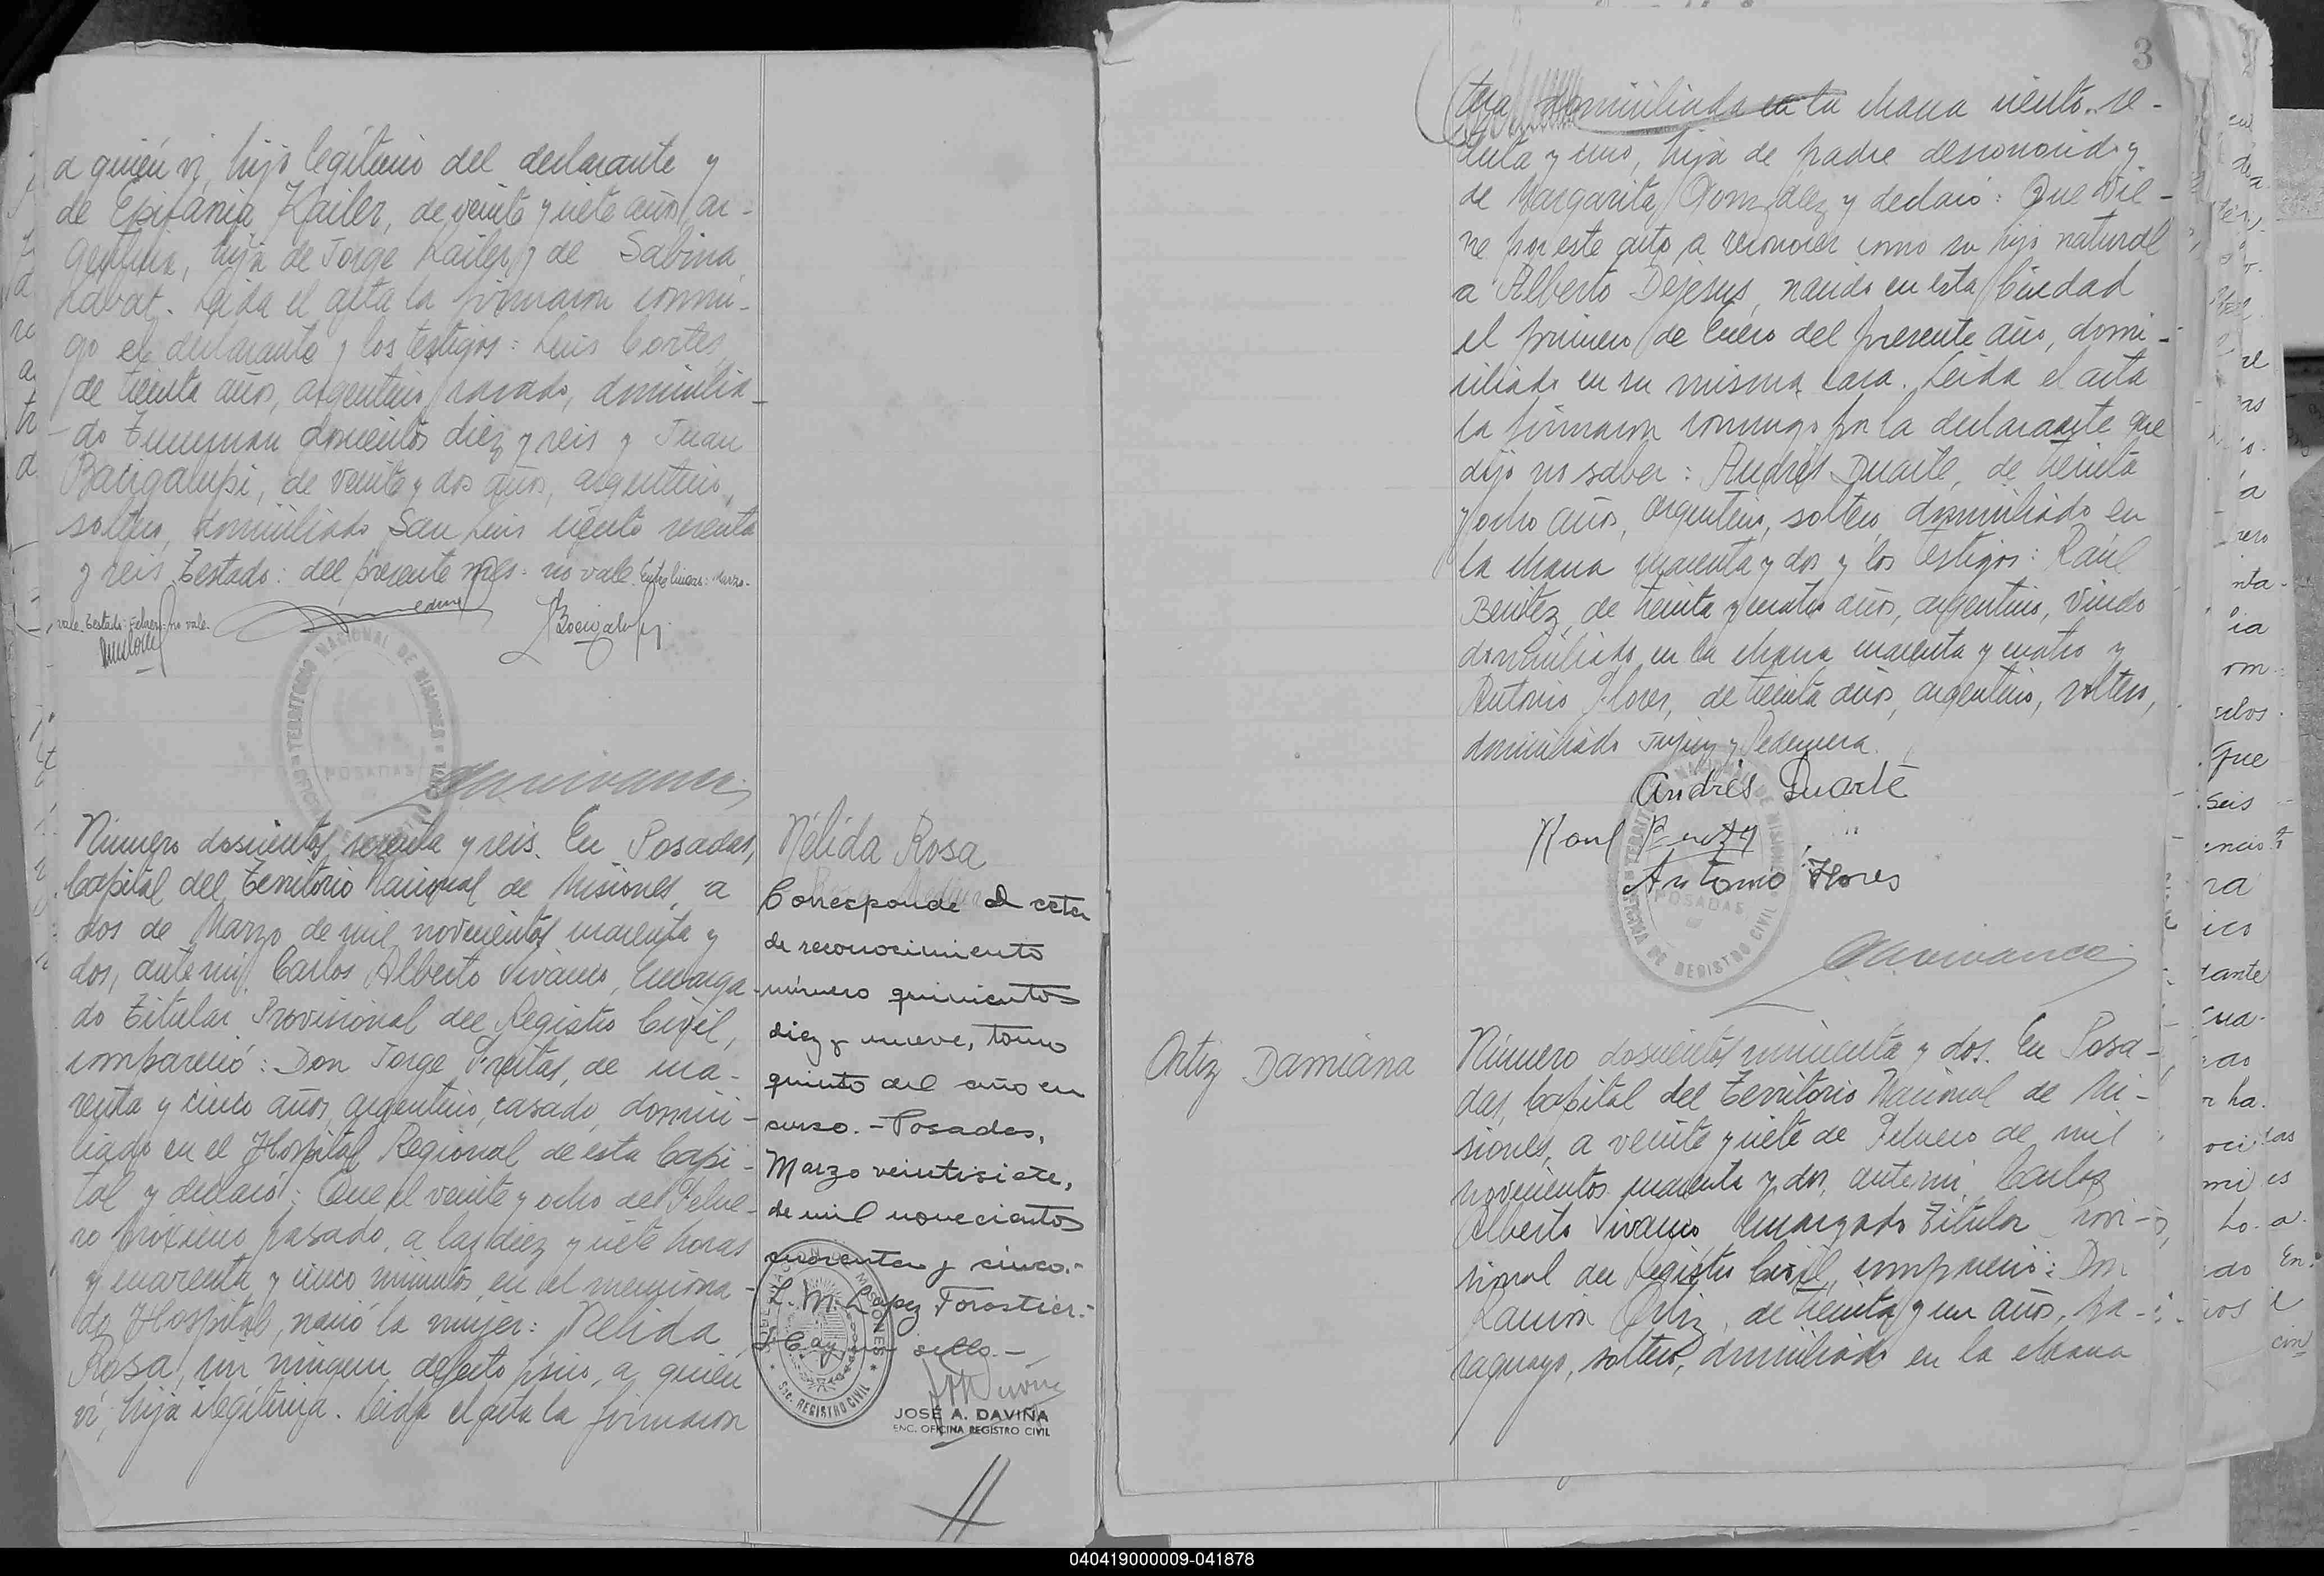 a quien vi, hijo legítimo del declarante y
de Epifania Kailer, de veinte y siete años, ar-
gentina, hija de Jorge Kailer y de Sabina
Labat. Leida el acta la firmaron conmi-
go el declarante y los testigos: Luis Cortes,
de treinta años, argentino, casado, domicilia-
do Tucuman doscientos diez y seis y Juan
Bacigalupi, de veinte y dos años, argentino,
soltero, domiciliado San Luis ciento sesenta
y seis. Testado: del presente mes: no vale. Entre lineas: Marzo.
vale. Testado: Febrero: no vale.
TERRITORIO NACIONAL DE MISIONES
POSADAS
Número doscientos sesenta y seis. En Posadas,
Capital del Territorio Nacional de Misiones, a
dos de Marzo de mil novecientos cuarenta y
dos, ante mi, Carlos Alberto Vivanco, Encarga-
do Titular Provisional del Registro Civil,
compareció: Don Jorge Freitas, de cua-
renta y cinco años, argentino, casado, domici-
liado en el Hospital Regional de esta Capi-
tal y declaró: Que el veinte y ocho del Febre-
ro próximo pasado, a las diez y siete horas
y cuarenta y cinco minutos, en el menciona-
do Hospital, nació la mujer: Nelida
Rosa, sin ningun defecto fisico, a quien
vi, hija ilegitima. Leida el acta la firmaron
Nélida Rosa
Corresponde al acta
de reconocimiento
número quinientos
diez y nueve, tomo
quinto del año en
curso. - Posadas,
Marzo veintisiete,
de mil novecientos
cuarenta y cinco.-
L. M. Lopez Forastier.-
Hay un sello.-
MISIONES
Sec. REGISTRO CIVIL
JOSÉ A. DAVIÑA
ENC. OFICINA REGISTRO CIVIL
3
tera domiciliada en la chacra ciento se-
tenta y uno, hija de padre desconocido y
de Margarita Gonzalez y declaró: Que vie-
ne por este acto a reconocer como su hijo natural
a Alberto Dejesus, nacido en esta Ciudad
el primero de Enero del presente año, domi-
ciliado en su misma casa. Leida el acta
la firmaron conmigo por la declarante que
dijo no saber: Andrés Duarte, de treinta
y ocho años, argentino, soltero, domiciliado en
la chacra cuarenta y dos y los testigos: Raúl
Benítez, de treinta y cuatro años, argentino, viudo
domiciliado en la chacra cuarenta y cuatro y
Antonio Flores, de treinta años, argentino, soltero,
domiciliado Jujuy y Pedernera.
Andrés Duarte
Raul Benitez
Antonio Flores
POSADAS
OFICINA DE REGISTRO CIVIL
Ortiz Damiana
Número doscientos cincuenta y dos. En Posa-
das, Capital del Territorio Nacional de Mi-
siones, a veinte y siete de Febrero de mil
novecientos cuarenta y dos, ante mi, Carlos
Alberto Vivanco Encargado Titular Provi-
sional del Registro Civil, compareció: Don
Ramón Ortiz, de treinta y un años, pa-
raguayo, soltero, domiciliado en la chacra
040419000009-041878